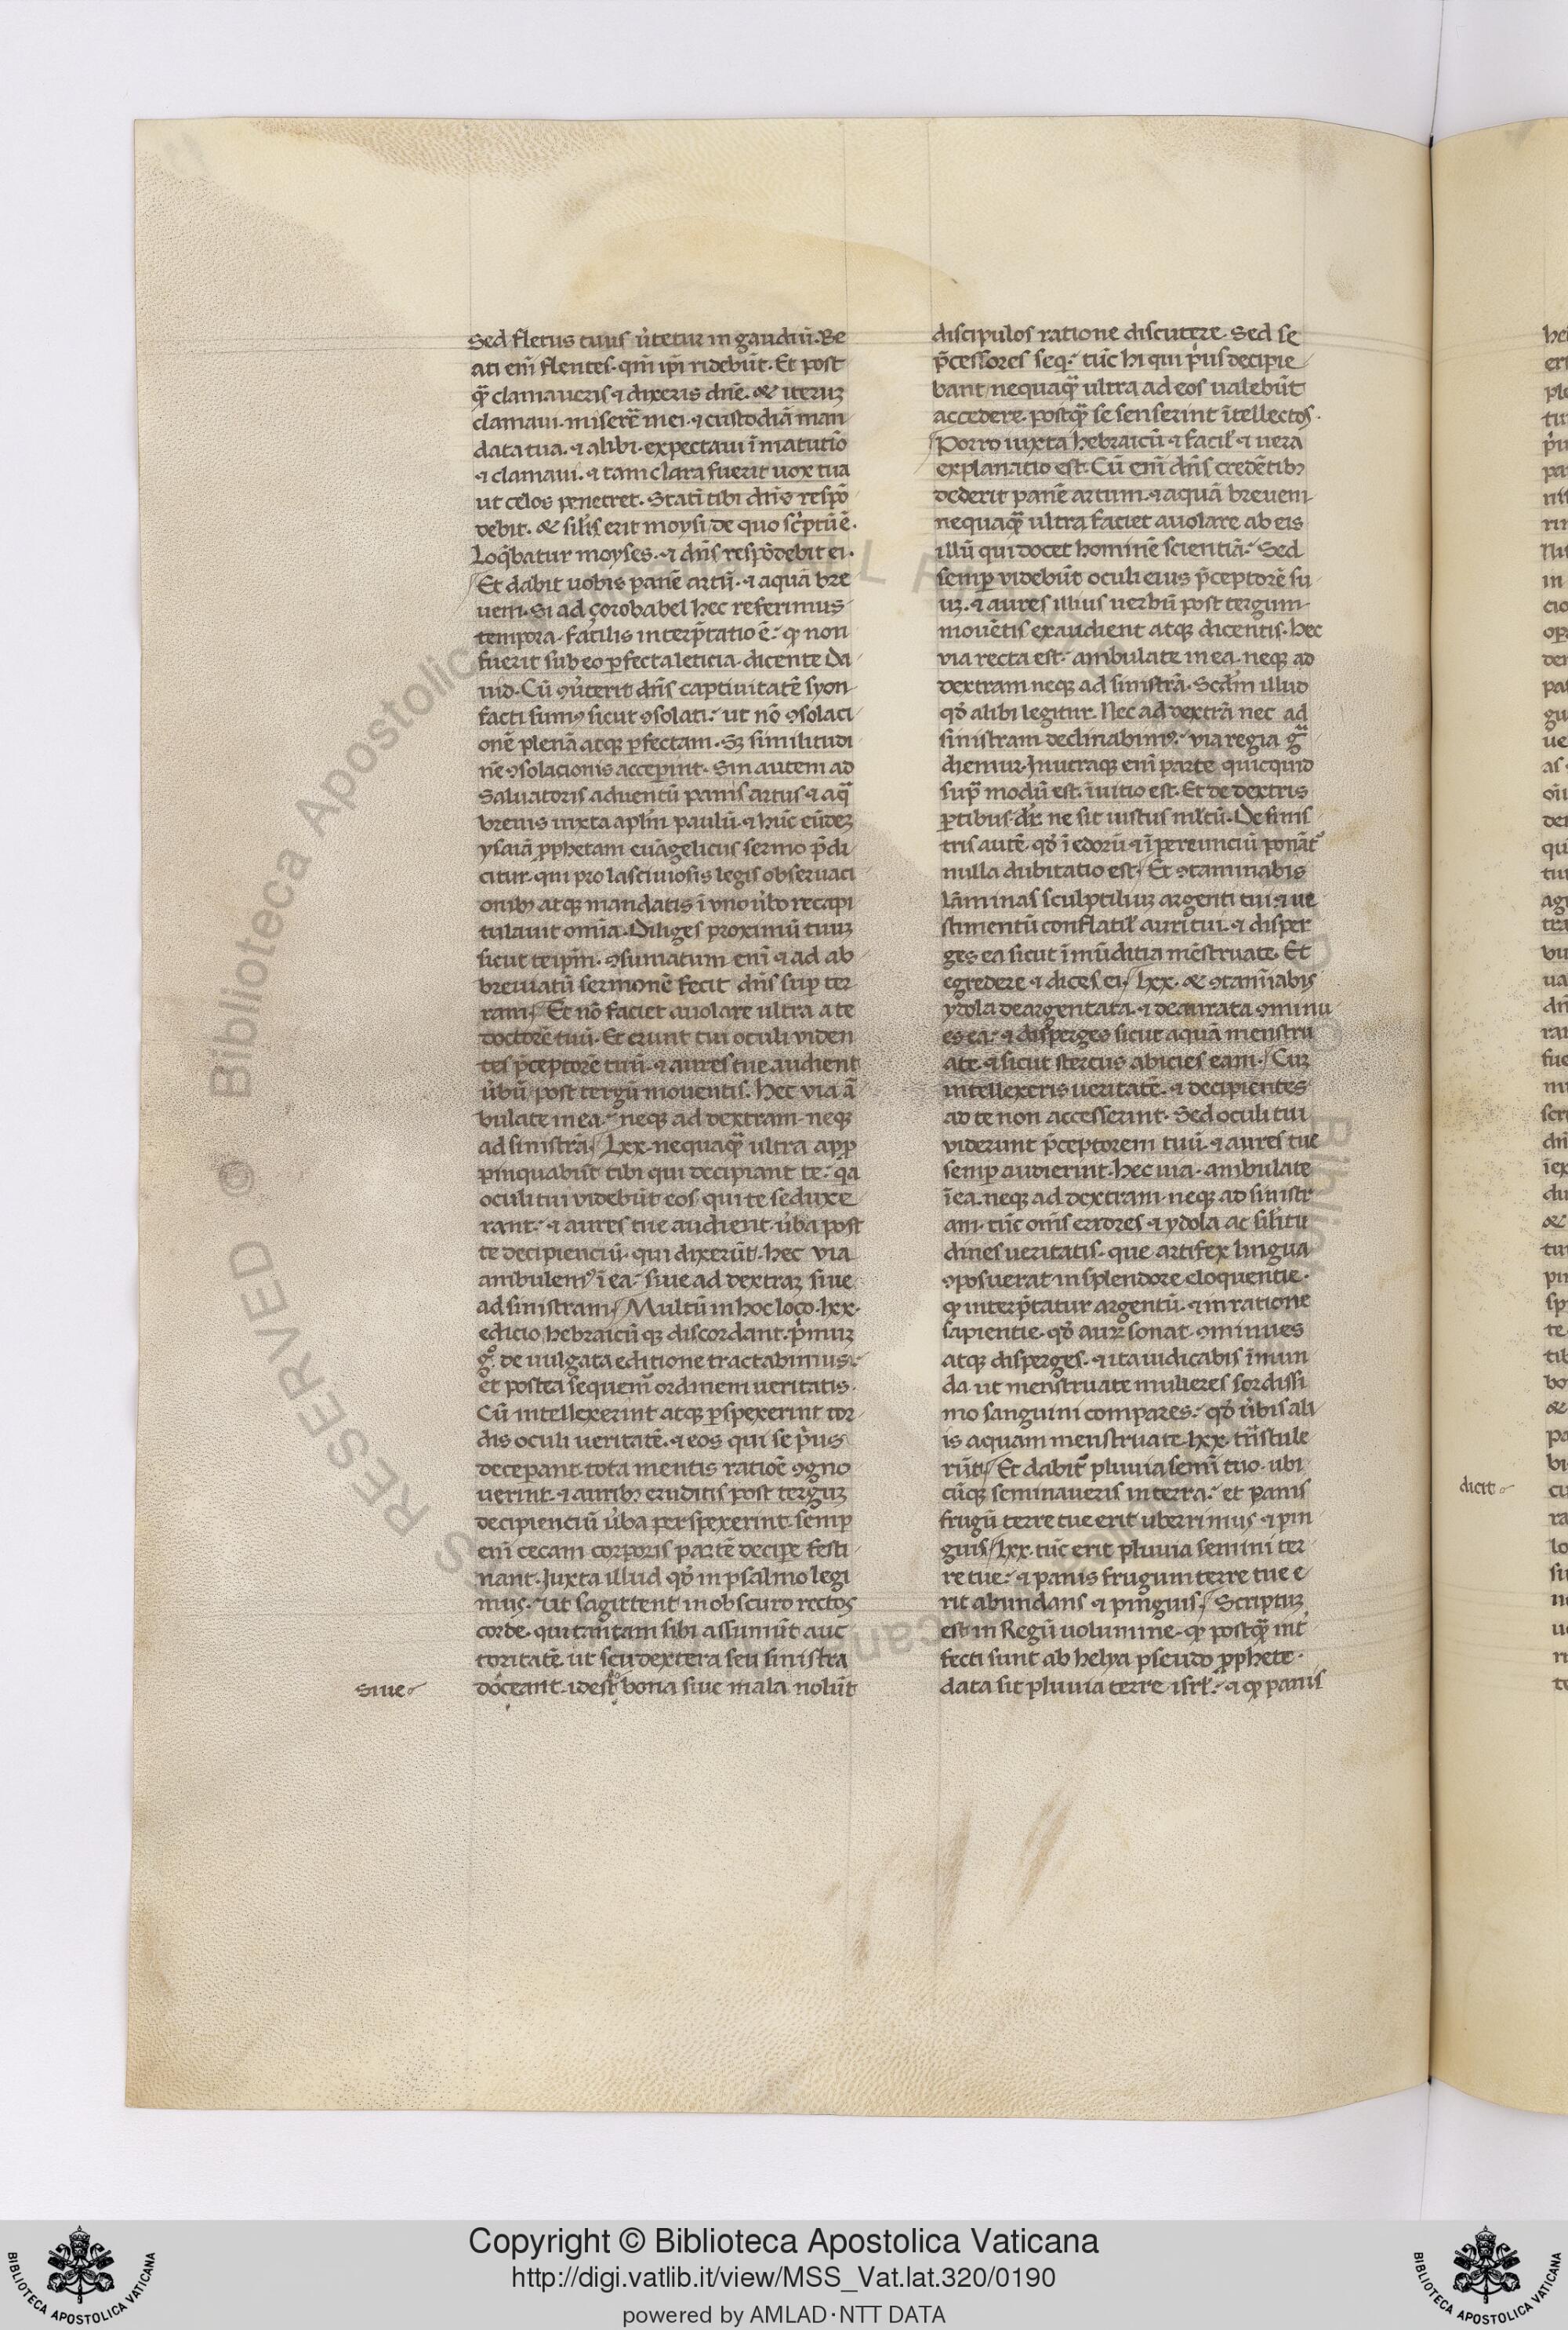 Sed fletus tuus ūtetur in gaudiū. Be
ati em̄ flentes. qm̄ ip̄i ridebūt. Et post
qͣ̄ clamaueris ⁊ dixeris dn̄e. & iteruꝫ
clamaui. miserē mei. ⁊ custodiā man
data tua. ⁊ alibi. expectaui ī matutīo
⁊ clamaui. ⁊ tam clara fuerit uox tua
ut celos penetret. Statī tibi dn̄s respō
debit. & silīs erit moysi de quo sc̄ptū ē.
Loq̄batur moyses. ⁊ dn̄s respōdebit ei.
Et dabit uobis panē artū. ⁊ aquā bre
uem. Si ad çorobabel hec referimus
tempora. facilis interp̄tatio ē. ꝙ non
fuerit sub eo ꝑfecta leticia. dicente Da
uid. Cū ꝯūterit dn̄s captiuitatē syon
facti sumꝰ sicut ꝯsolati. ut nō ꝯsolaci
onē plenā atqꝫ ꝑfectam. Sꝫ similitudi
nē ꝯsolacionis acceꝑint. Sin autem ad
Saluatoris aduentū panis artus ⁊ aqͣ
breuis iuxta aplm̄ paulū. ⁊ hūc eūdeꝫ
ysaiā ꝓphetam euāgelicus sermo p̄di
citur. qui pro lasciuiosis legis obseruaci
onibꝫ atqꝫ mandatis ī vno ūbo recapi
tulauit om̄ia. Diliges proximū tuuꝫ
sicut te ip̄m. ꝯsumatum em̄ ⁊ ad ab
breuiatū sermonē fecit dn̄s suꝑ ter
ram. Et nō faciet auolare ultra a te
doctorē tuū. Et erunt tui oculi viden
tes p̄ceptorē tuū. ⁊ aures tue audient
ūbū post tergū mouentis. Hec via ā
bulate in ea. neqꝫ ad dextram neqꝫ
ad sinistrā. Lxx. nequaqͣ̄ ultra apꝓ
pinquabūt tibi qui decipiant te. qa
oculi tui videbūt eos qui te seduxe
rant. ⁊ aures tue audient ūba post
te decipienciū. qui dixerūt. hec via
ambulemꝰ ī ea. siue ad dextraꝫ siue
ad sinistram. Multū in hoc loco. lxx.
edicio hebraicū qꝫ discordant. p̄muꝫ
gͦ. de uulgata editione tractabimus.
et postea sequem̄ ordinem ueritatis.
Cū intellexerint atqꝫ ꝑspexerint cor
dis oculi ueritatē. ⁊ eos qui se p̄us
deceꝑant. tota mentis ratiōe ꝯgno
uerint. ⁊ auribꝫ eruditis post terguꝫ
decipienciū ūba perspexerint. semꝑ
em̄ cecam corporis partē deciꝑe festi
nant. Juxta illud qd̄ in psalmo legi
mus. Ut sagittent in obscuro rectos
corde. qui tantam sibi assumūt auc
toritatē. ut seu dextera seu sinistra
siue
doceant. idest bona siue mala nolūt
discipulos ratione discutere. Sed se
p̄cessores seqͥ. tūc hi qui p̄us decipie
bant nequaqͣ̄ ultra ad eos ualebūt
accedere. postqͣ̄ se senserint ītellectos.
Porro iuxta hebraicū ⁊ facil̄ ⁊ uera
explanatio est. Cū em̄ dn̄s credētibꝫ
dederit panē artum. ⁊ aquā breuem
nequaqͣ̄ ultra faciet auolare ab eis
illū qui docet hominē scientiā. Sed
semꝑ videbūt oculi eius p̄ceptorē su
uꝫ. ⁊ aures illius uerbū post tergum
mouētis exaudient atqꝫ dicentis. hec
via recta est. ambulate in ea. neqꝫ ad
dextram neqꝫ ad sinistrā. Scd̄m illud
qd̄ alibi legitur. Nec ad dextrā nec ad
sinistram declinabimꝰ. via regia gͣ
diemur. In utraqꝫ em̄ parte quicquid
supͣ modū est. ī uitio est. Et de dextris
ꝑtibus dr̄. ne sit iustus ml̄tū. De sinis
tris autē. qd̄ ī edorū ⁊ ī pereunciū ponāt᷑
nulla dubitatio est. Et ꝯtaminabis
lāminas sculptiliuꝫ argenti tui. ⁊ ue
stimentū conflatil̄ auri tui. ⁊ disper
ges ea sicut īmūditia mēstruate. Et
egredere ⁊ dices ei. lxx. & ꝯtamīabis
ydola deargentata. ⁊ deaurata ꝯminu
es ea. ⁊ disperges sicut aquā menstru
ate. ⁊ sicut stercus abicies eam. Cuꝫ
intellexeris ueritatē. ⁊ decipientes
ad te non accesserint. Sed oculi tui
viderunt p̄ceptorem tuū. ⁊ aures tue
semꝑ audierint. hec uia. ambulate
ī ea. neqꝫ ad dextram neqꝫ ad sinistr
am. tūc om̄s errores. ⁊ ydola ac silītu
dines ueritatis. que artifex lingua
ꝯposuerat in splendore eloquentie.
ꝙ interp̄tatur argentū. ⁊ in ratione
sapientie. qd̄ auꝝ sonat. ꝯminues
atqꝫ disperges. ⁊ ita iudicabis īmun
da ut menstruate mulieres sordissi
mo sanguini compares. qd̄ ūbis ali
is aquam menstruate. lxx. trn̄stule
rūt. Et dabit᷑ pluuia semī tuo. ubi
cūqꝫ seminaueris in terra. et panis
frugū terre tue erit uberrimus ⁊ pin
guis. lxx. tūc erit pluuia semini ter
re tue. ⁊ panis frugum terre tue e
rit abundans ⁊ pinguis. Scriptuꝫ
est in Regū uolumine. ꝙ postqͣ̄ int̄
fecti sunt ab helya pseudo ꝓphete.
data sit pluuia terre isrl̄. ⁊ ꝙ panis
dicit
Copyright © Biblioteca Apostolica Vaticana
http://digi.vatlib.it/view/MSS_Vat.lat.320/0190
powered by AMLAD·NTT DATA
BIBLIOTECA APOSTOLICA VATICANA
BIBLIOTECA APOSTOLICA VATICANA